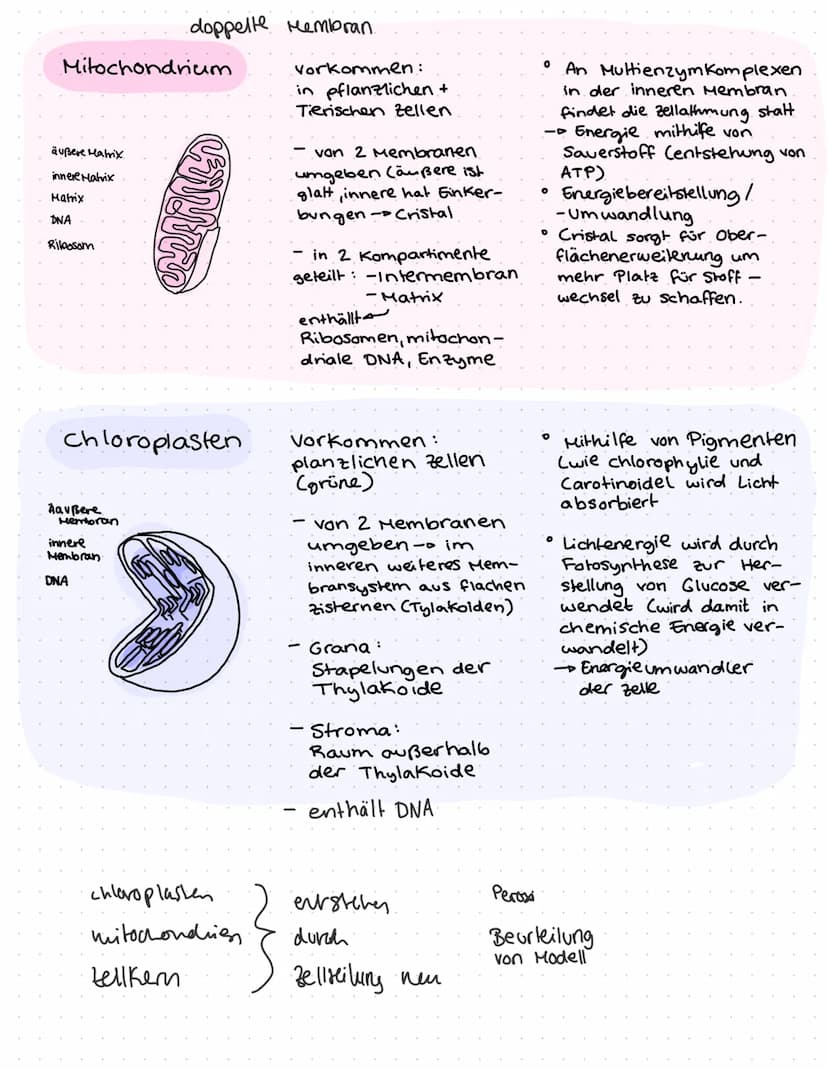 doppelte Membran
Mitochondrium
äußere Matrix
innere Matrix
Matrix
DNA
Ribosom
Vorkommen:
in pflanzlichen +
Tierischen Zellen
- von 2 Membranen
umgeben (äußere ist
glatt, innere hat Einker-
bungen → Cristal
- in 2 Kompartimente
geteilt: - Intermembran
- Matrix
enthällt
Ribosomen, mitochon-
driale DNA, Enzyme
° An Multienzymkomplexen
in der inneren Membran
findet die Zellathmung statt
→ Energie mithilfe von
Sauerstoff (entstehung von
ATP)
° Energiebereitstellung /
- Umwandlung
° Cristal sorgt für Ober-
flächenerweiterung um
mehr Platz für Stoff -
wechsel zu schaffen.
Chloroplasten
Äaußere
Membran
innere
Membran
DNA
Vorkommen:
planzlichen Zellen
(grüne)
- von 2 Membranen
umgeben → im
inneren weiteres Mem-
bransystem aus flachen
Zisternen (Tylakoiden)
- Grana:
Stapelungen der
Thylakoide
- Stroma:
Raum außerhalb
der Thylakoide
- enthält DNA
° Mithilfe von Pigmenten
(wie chlorophylle und
Carotinoide) wird Licht
absorbiert
° Lichtenergie wird durch
Fotosynthese zur Her-
stellung von Glucose ver-
wendet (wird damit in
chemische Energie ver-
wandelt)
→ Energieumwandler
der Zelle
chloroplasten
mitochondrien
Zellkern
entstehen
durch
Zellteilung neu
Peroxi
Beurteilung
von Modell